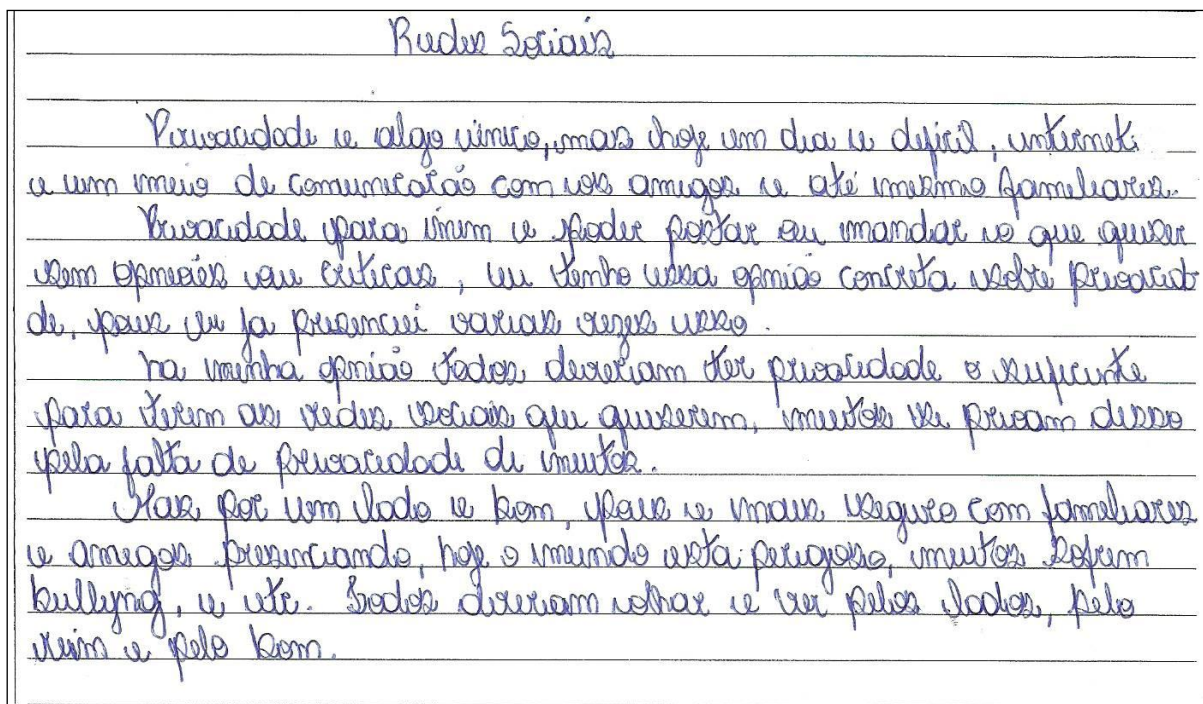 Redes Sociais
Privacidade e algo único, mas hoje em dia e dificil, internet
e um meio de comunicação com os amigos e até mesmo familiares.
Privacidade para mim e poder postar ou mandar o que quiser
sem opniões ou criticas, eu tenho essa opnião concreta sobre privacida
de, pois eu ja presenciei varias vezes isso.
na minha opnião todos deveriam ter privacidade o suficiente
para terem as redes sociais que quiserem, muitos se privam disso
pela falta de privacidade de muitos.
Mas por um lado e bom, pois e mais seguro com familiares
e amigos presenciando, hoje o mundo esta perigoso, muitos sofrem
bullyng, e etc. Todos deveriam olhar e ver pelos lados, pelo
ruim e pelo bom.